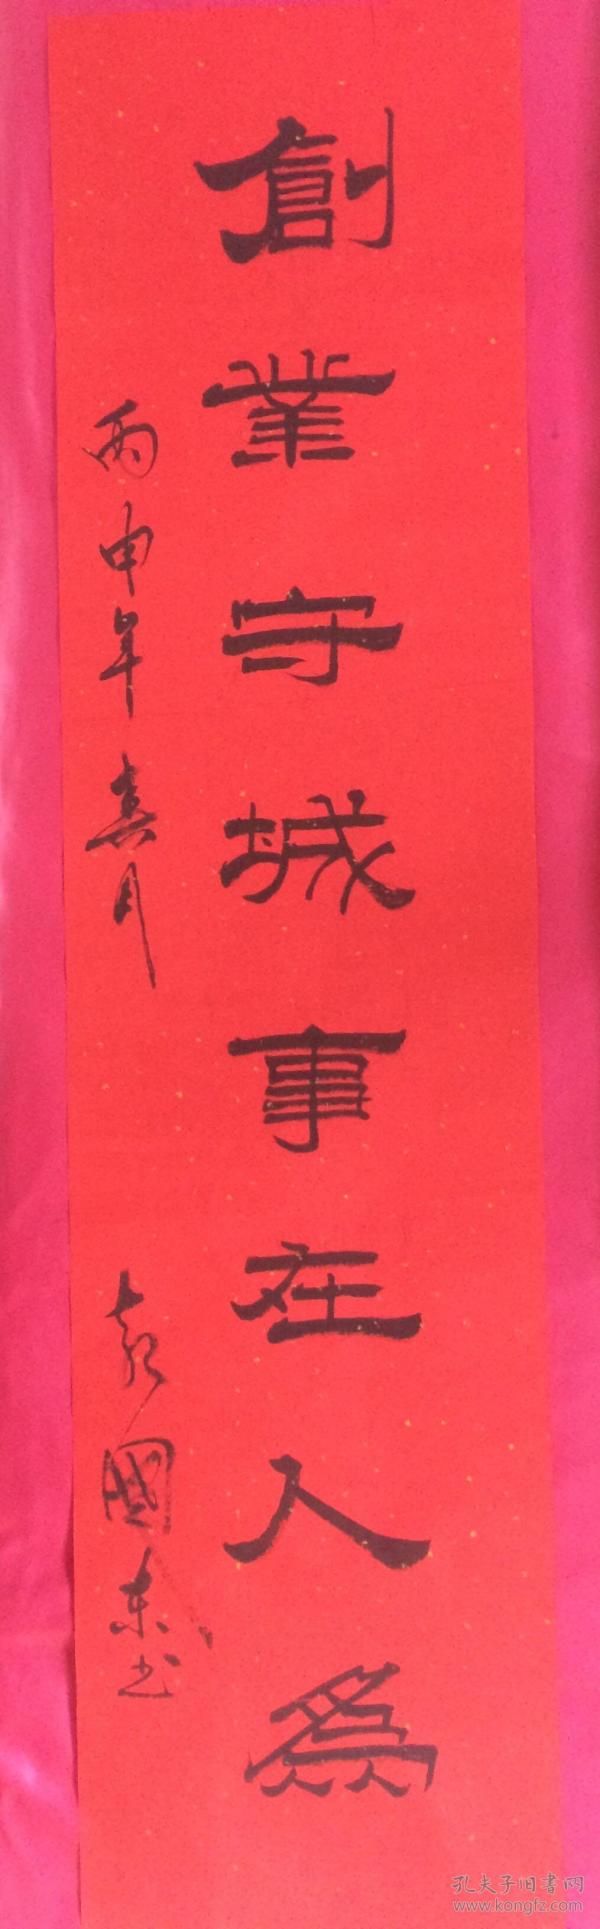 創業守城事在人為
丙申年春月
袁國東书
孔夫子旧書网
www.kongfz.com